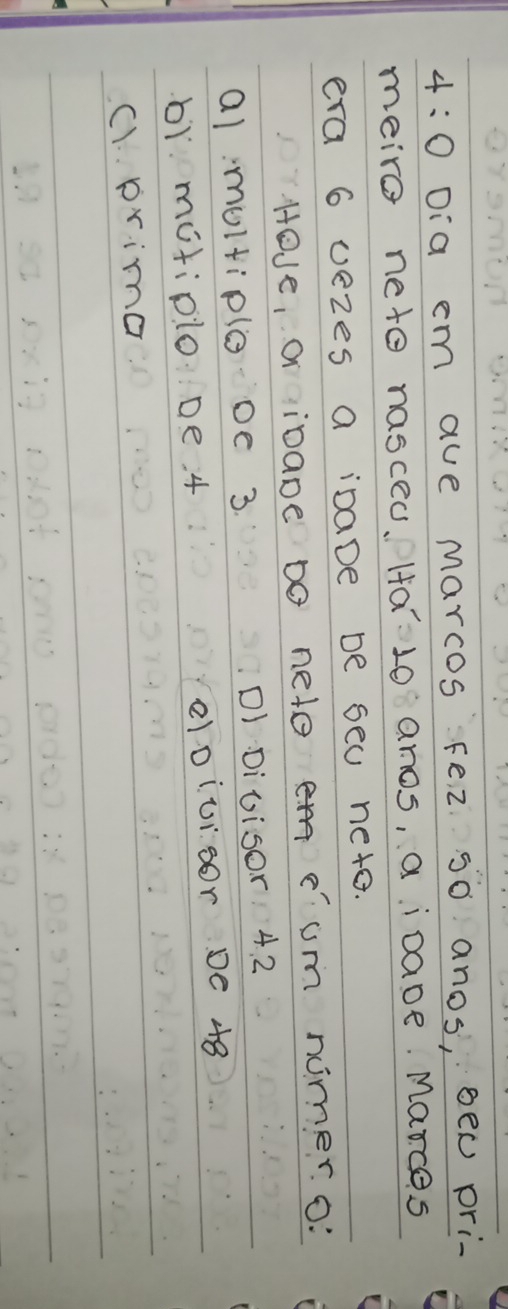 4: O Dia em que Marcos fez 50 anos, seu pri-
meiro neto nasceu. Há 10 anos, a idade Marcos
era 6 vezes a idade de seu neto.
Hoje, a idade do neto em é um número:
a) multiplo de 3 D) Divisor 42
b) mútiplo De 4 e) Divisor De 48
c) primo